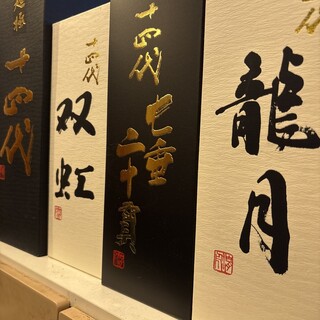 超極
十四代
十四代
双虹
十四代
七垂
二十貫
代
龍月